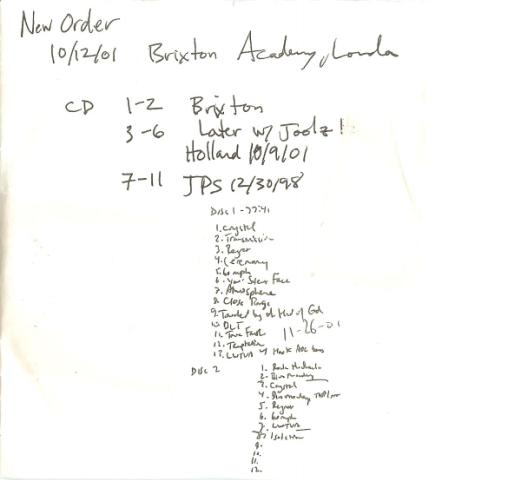 New Order
10/12/01 Brixton Academy, London
CD 1-2 Brixton
3-6 Later w/ Joolz!
Holland 10/9/01
7-11 JPS 12/30/98
Disc 1 - 77:41
1. Crystal
2. Transmission
3. Regret
4. Ceremony
5. 60 mph
6. Your Silent Face
7. Atmosphere
8. Close Range
9. Touched by the Hand of God
10. BLT
11. True Faith
11-26-01
12. Temptation
13. LWTUA
Disc 2
1.
2. Blue Monday
3. Crystal
4. Blue Monday
5. Regret
6. 60 mph
7. LWTUA
8. Isolation
9.
10.
11.
12.